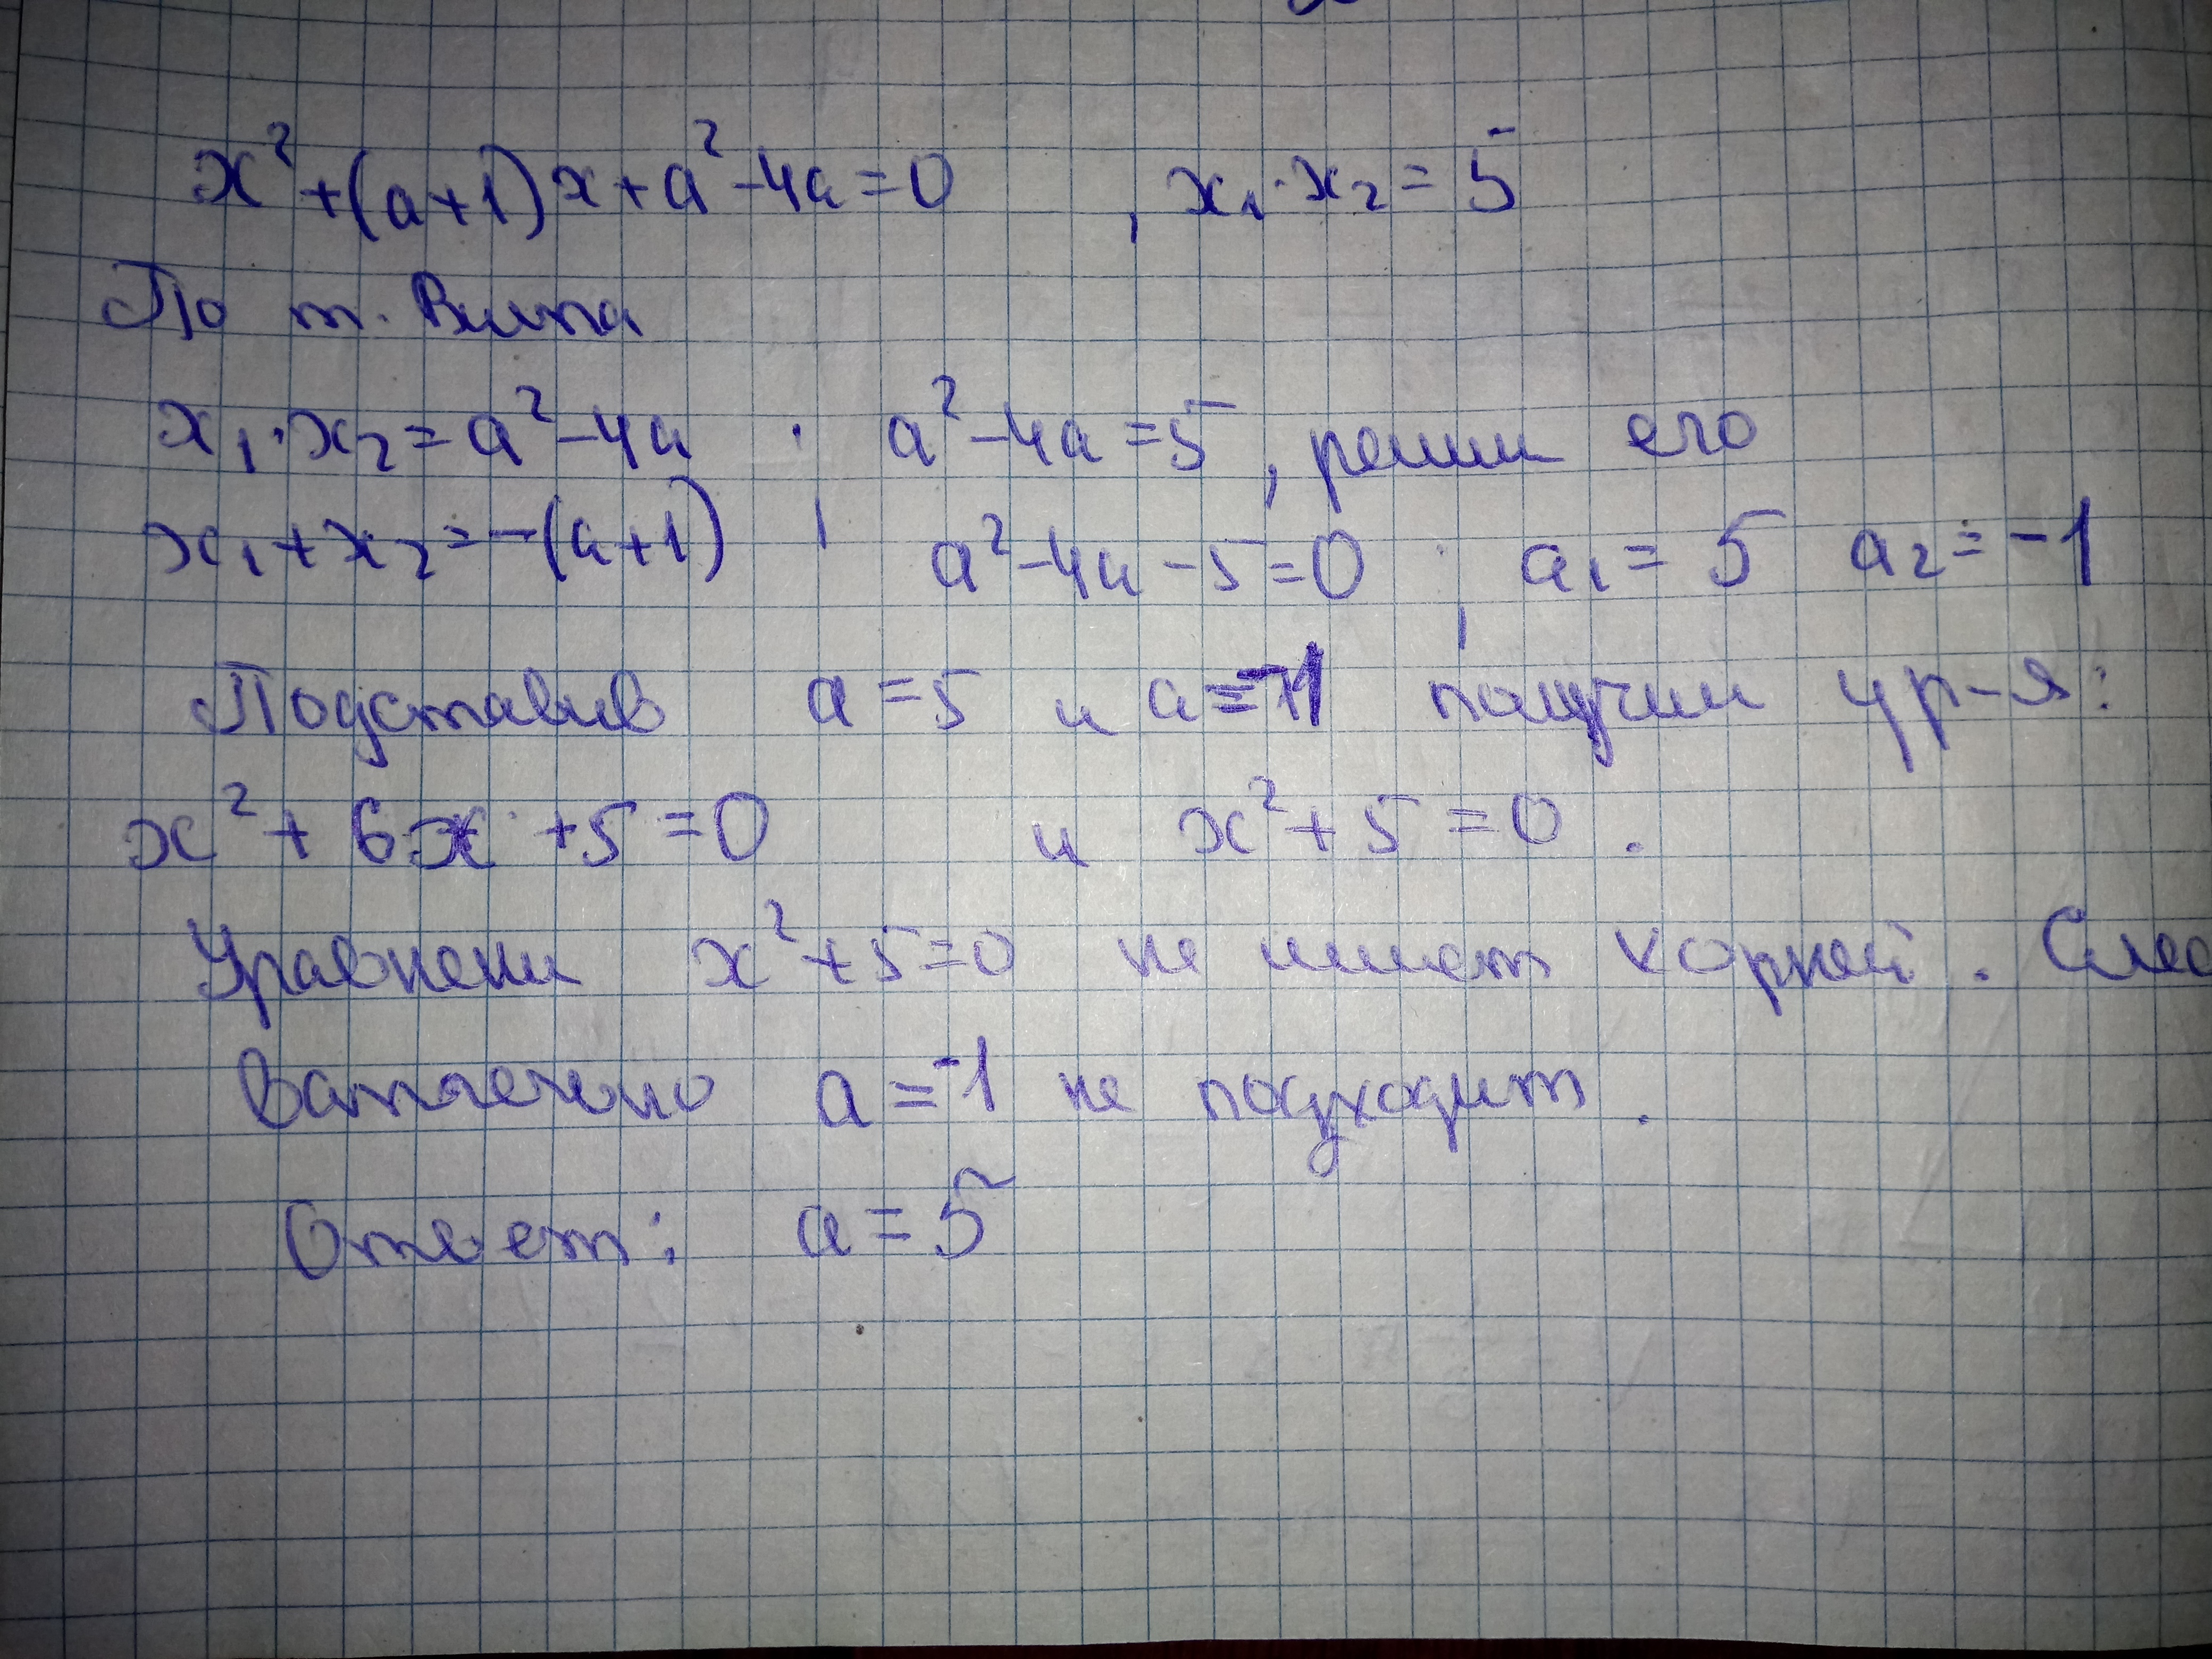 x² + (a+1)x + a² - 4a = 0 , x₁·x₂ = 5
По т. Виета
x₁·x₂ = a² - 4a ; a² - 4a = 5, решим его
x₁ + x₂ = -(a+1) a² - 4a - 5 = 0 ; a₁ = 5 a₂ = -1
Подставив a = 5 и a = -1 получим ур-я:
x² + 6x + 5 = 0 и x² + 5 = 0 .
Уравнени x² + 5 = 0 не имеет корней . След
вательно a = -1 не подходит .
Ответ: a = 5